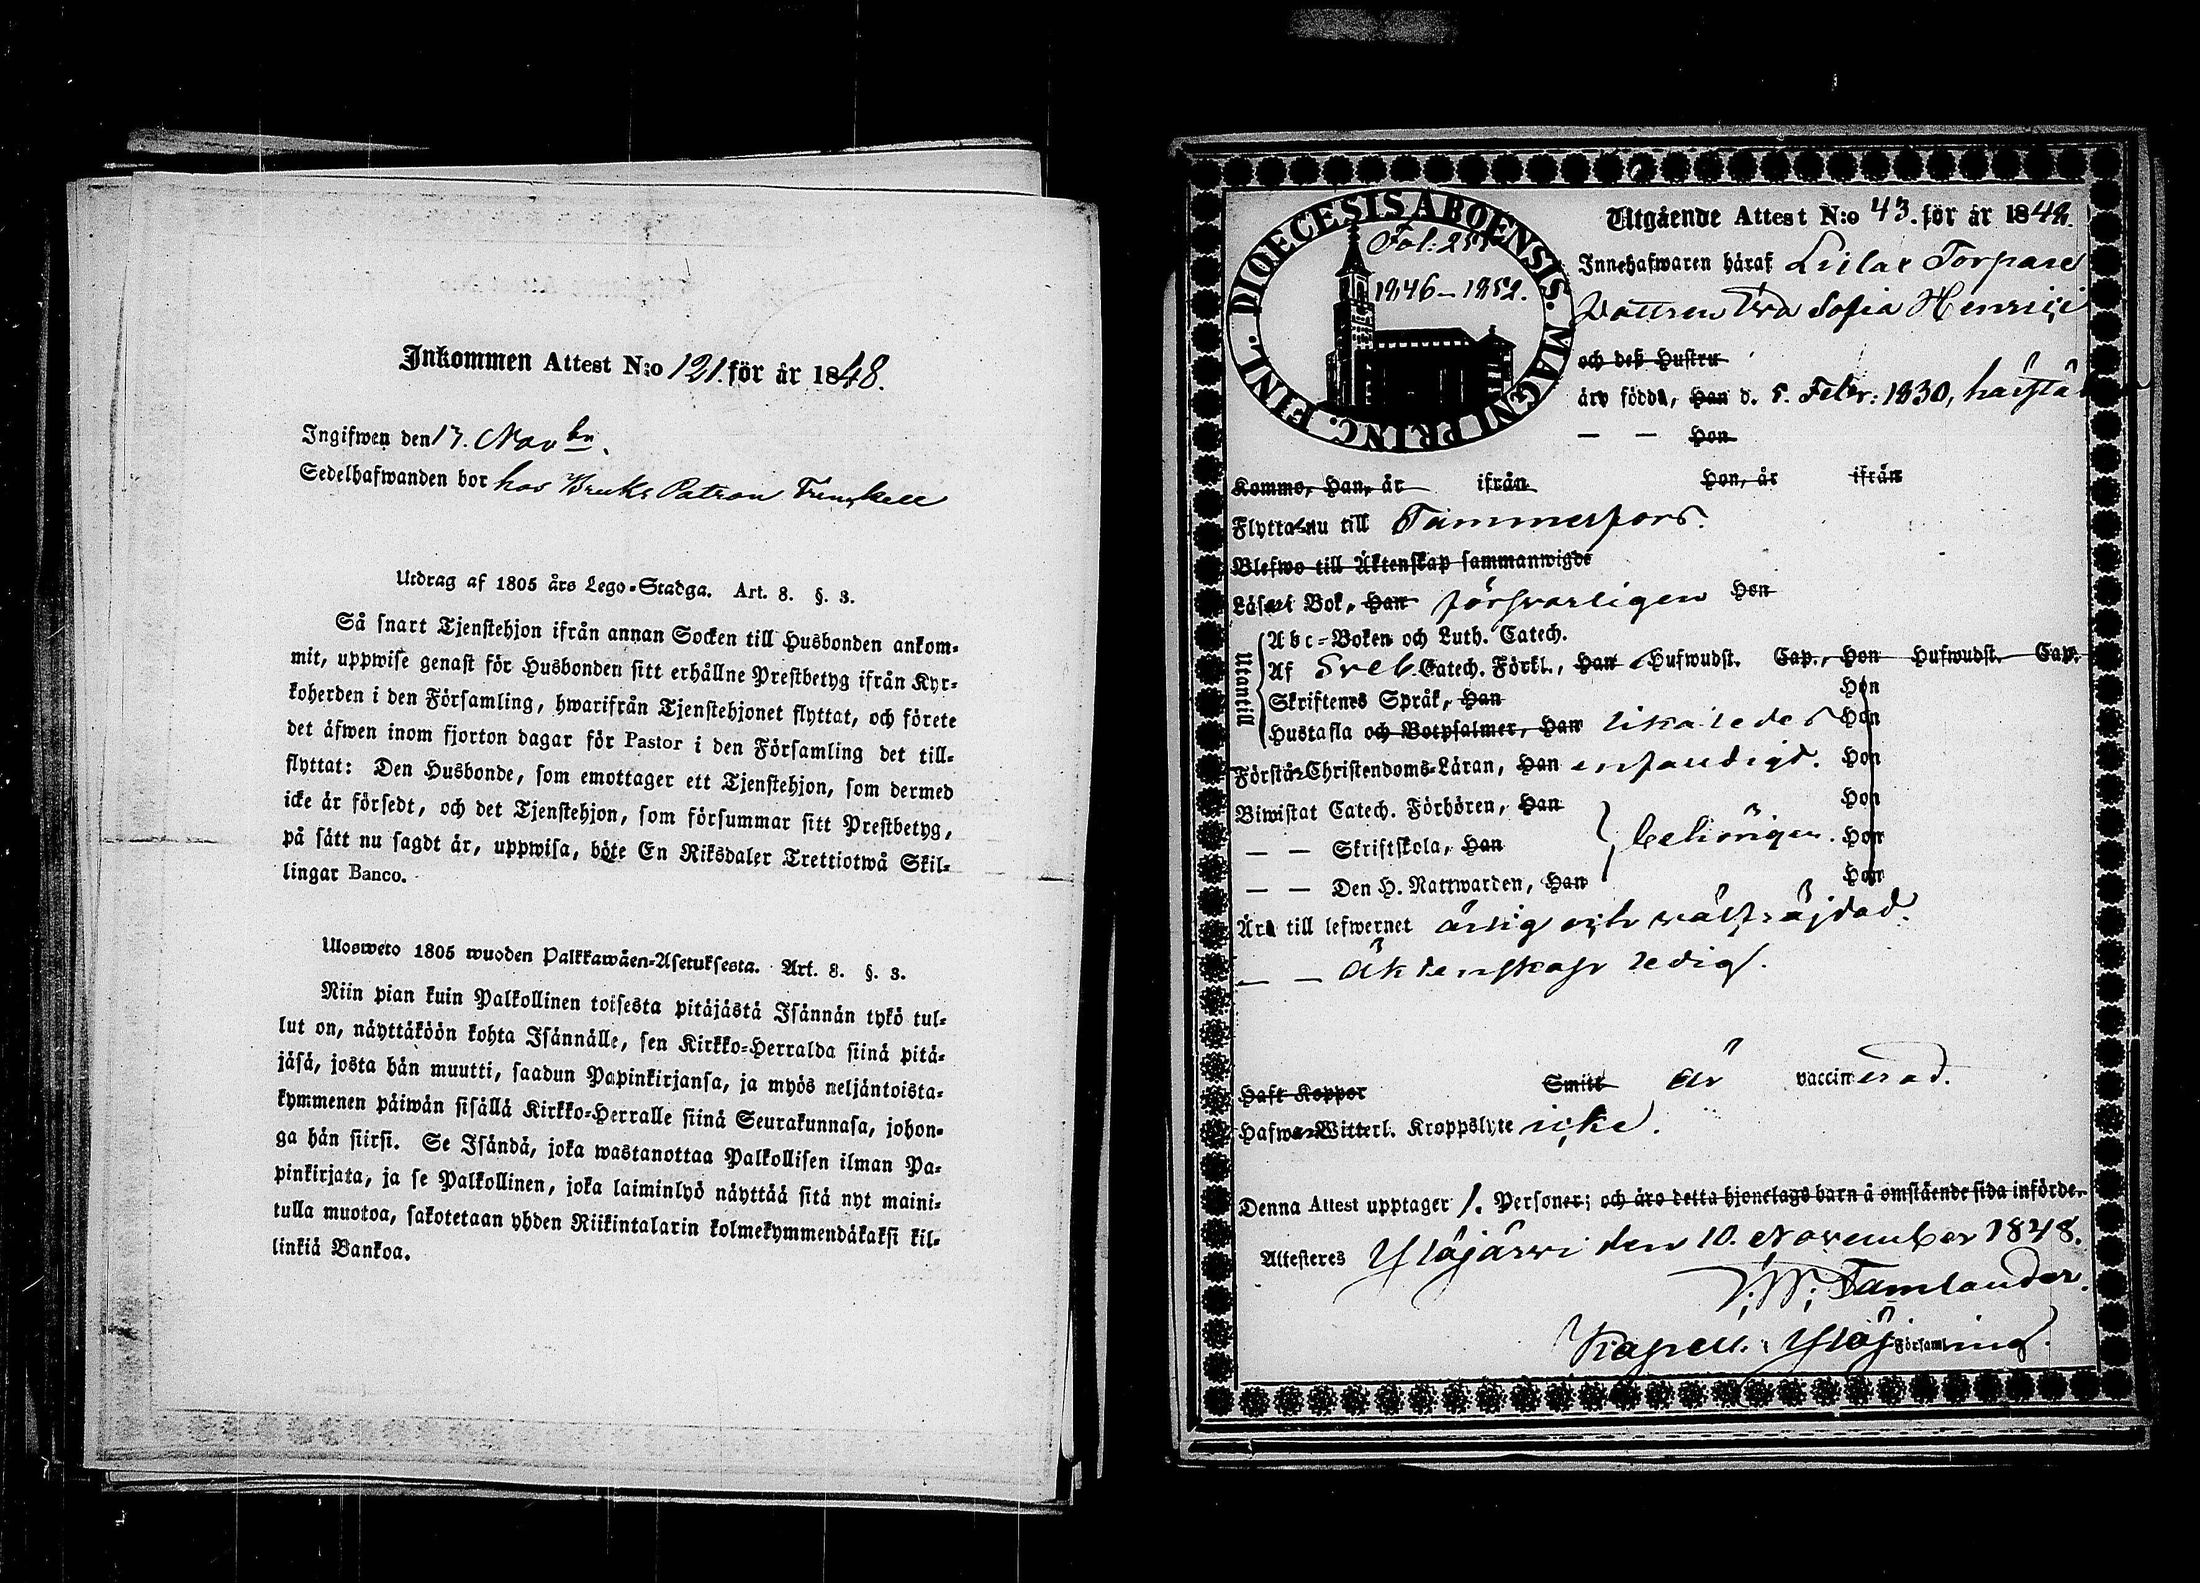 Inkommen Attest N:o 121. för år 1848.
Ingifwen den 17. Novbr.
Sedelhafwanden bor hos Bruks Patron Frenckell
Utdrag af 1805 års Lego-Stadga. Art. 8. §. 3.
Så snart Tjenstehjon ifrån annan Socken till Husbonden ankom-
mit, uppwise genast för Husbonden sitt erhållne Prestbetyg ifrån Kyr-
koherden i den Församling, hwarifrån Tjenstehjonet flyttat, och förete
det äfwen inom fjorton dagar för Pastor i den Församling det till-
flyttat: Den Husbonde, som emottager ett Tjenstehjon, som dermed
icke är försedt, och det Tjenstehjon, som försummar sitt Prestbetyg,
på sätt nu sagdt är, uppwisa, böte En Riksdaler Trettiotwå Skil-
lingar Banco.
Ulosweto 1805 wuoden Palkkawäen-Asetuksesta. Art. 8. §. 3.
Niin pian kuin Palkollinen toisesta pitäjästä Isännän tykö tul-
lut on, näyttäköön kohta Isännälle, sen Kirkko-Herralda siinä pitä-
jäsä, josta hän muutti, saadun Papinkirjansa, ja myös neljäntoista-
kymmenen päiwän sisällä Kirkko-Herralle siinä Seurakunnasa, johon-
ga hän siirsi. Se Isändä, joka wastanottaa Palkollisen ilman Pa-
pinkirjata, ja se Palkollinen, joka laiminlyö näyttää sitä nyt maini-
tulla muotoa, sakotetaan yhden Riikintalarin kolmekymmendäkaksi kil-
linkiä Bankoa.
DIOECESIS ABOENSIS. MAGNI PRINC. FINL.
Fol:
1846-1852.
Utgående Attest N:o 43. för år 1848.
Innehafwaren häraf Torpare
Dottren Sofia Henrici
och deß Hustru
äro födda, Han d. 5. Febr: 1830, härstä
— — Hon
Kommo, Han, år ifrån Hon, år ifrån
Flytta nu till Tammerfors.
Blefwo till Äktenskap sammanwigde
Läsa i Bok, Han försvarligen Hon
Utantill
Abc-Boken och Luth. Catech.
Af Sveb. Catech. Förkl., Han Hufwudst. Cap., Hon Hufwudst. Cap.
Skriftenes Språk, Han Hon
Hustafla och Botpsalmer, Han likaledes Hon
Förstår Christendoms-Läran, Han enfaudigt. Hon
Biwistat Catech. Förhören, Han Hon
— — Skriftskola, Han behörigen. Hon
— — Den H. Nattwarden, Han Hon
Äro till lefwernet ärlig och välfräjdad.
— — Äktenskap ledig.
Haft Koppor Smitt är vaccinerad.
Hafwa Witterl. Kroppslyte icke.
Denna Attest upptager 1. Personer; och äro detta hjonelags barn å omstående sida införde.
Attesteres Ylöjärwi den 10. November 1848.
Tamlander.
Kapell. i Ylöj Församling.